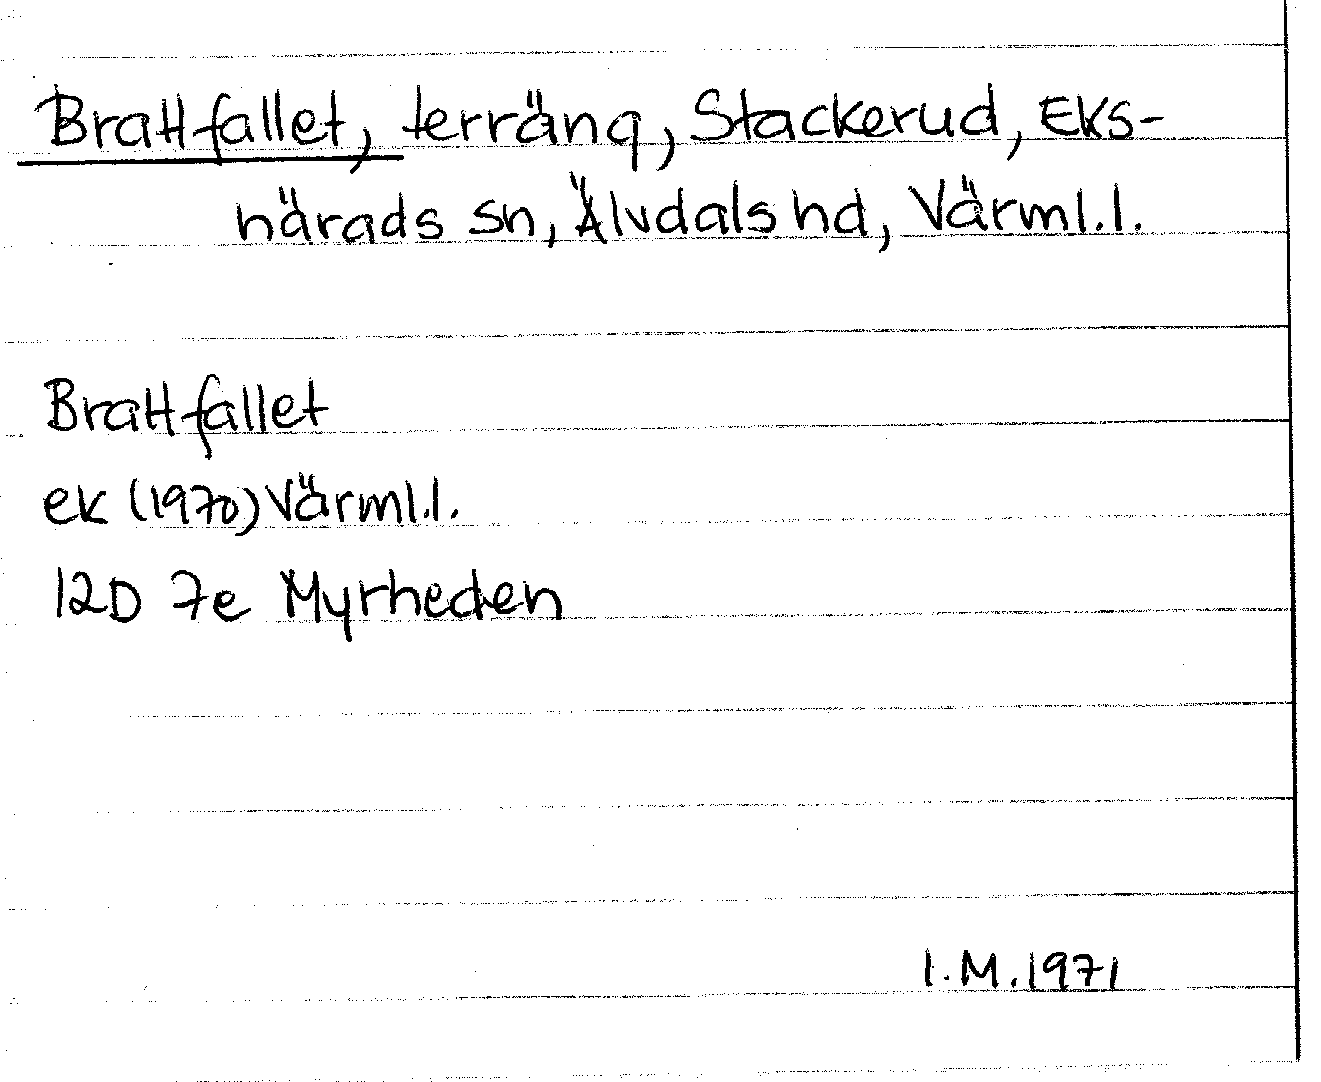 Brattfallet, terräng, Stackerud, Eks-
härads sn, Älvdals hd, Värml.l.
Brattfallet
ek (1970) Värml.l.
12D 7e Myrheden
I.M. 1971